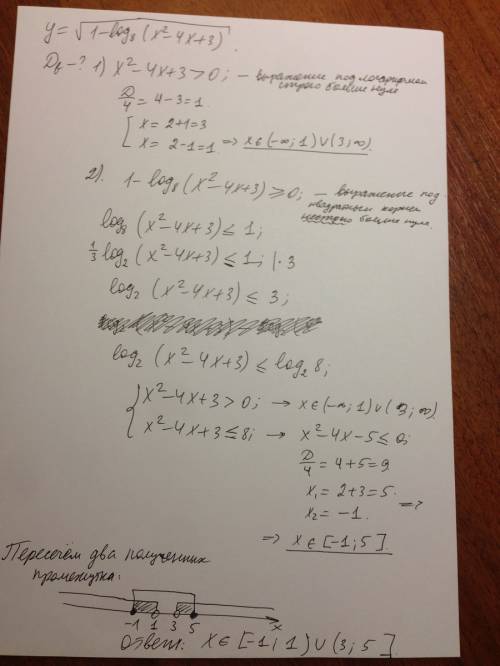 y=√(1-log₈(x²-4x+3)).
D_f-? 1) x²-4x+3>0; - выражение под логарифмом
строго больше нуля
D/4 = 4-3=1
[ x = 2+1=3
x = 2-1=1. ⇒ x∈(-∞;1)∪(3;∞).
2). 1-log₈(x²-4x+3)≥0; - выражение под
квадратным корнем
нестрого больше нуля.
log₈(x²-4x+3)≤1;
1/3 log₂(x²-4x+3)≤1; |·3
log₂(x²-4x+3)≤3;
log₂(x²-4x+3)≤log₂8;
{ x²-4x+3>0; → x∈(-∞;1)∪(3;∞)
x²-4x+3≤8; → x²-4x-5≤0;
D/4=4+5=9
x₁=2+3=5.
x₂=-1. ⇒
⇒ x∈[-1;5].
Пересечём два полученных
промежутка:
-1 1 3 5 x
Ответ: x∈[-1;1)∪(3;5]